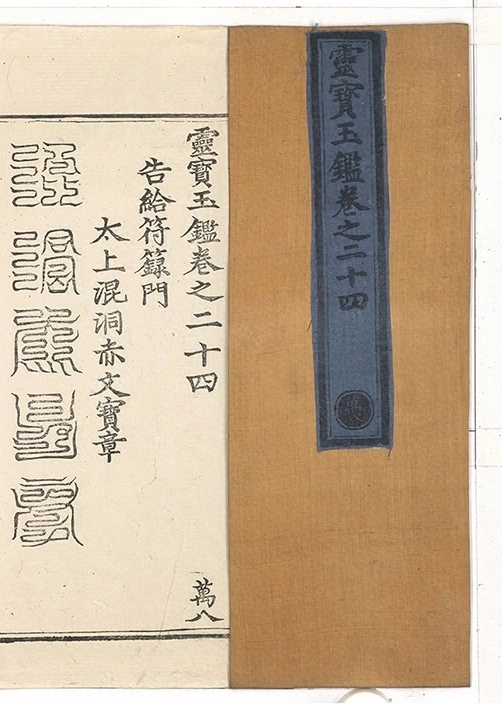 靈寶玉鑑卷之二十四
靈寶玉鑑卷之二十四
萬八
告給符籙門
太上混洞赤文寶章